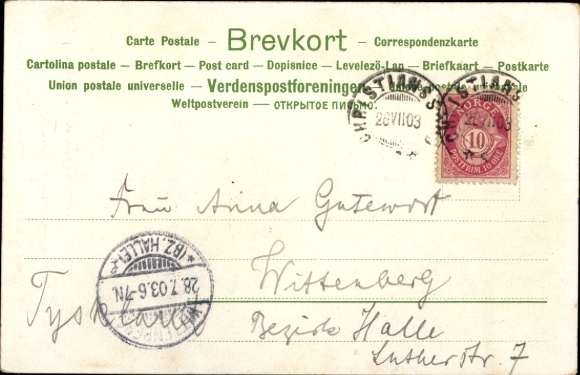 Carte Postale – Brevkort – Correspondenzkarte
Cartolina postale – Brefkort – Post card – Dopisnice – Levelező-Lap – Briefkaart – Postkarte
Union postale universelle – Verdenspostforeningen
Weltpostverein — ОТКРЫТОЕ ПИСЬМО.
CHRISTIANSS
26 VII 03
CHRISTIANS
26 VII 03
NORGE
10
POSTFRIM. 10 ØRE
Frau Anna Gutewort
Wittenberg
Tyskland
Bezirk Halle
Lutherstr. 7
*(BZ. HALLE)
28.7.03.6-7N